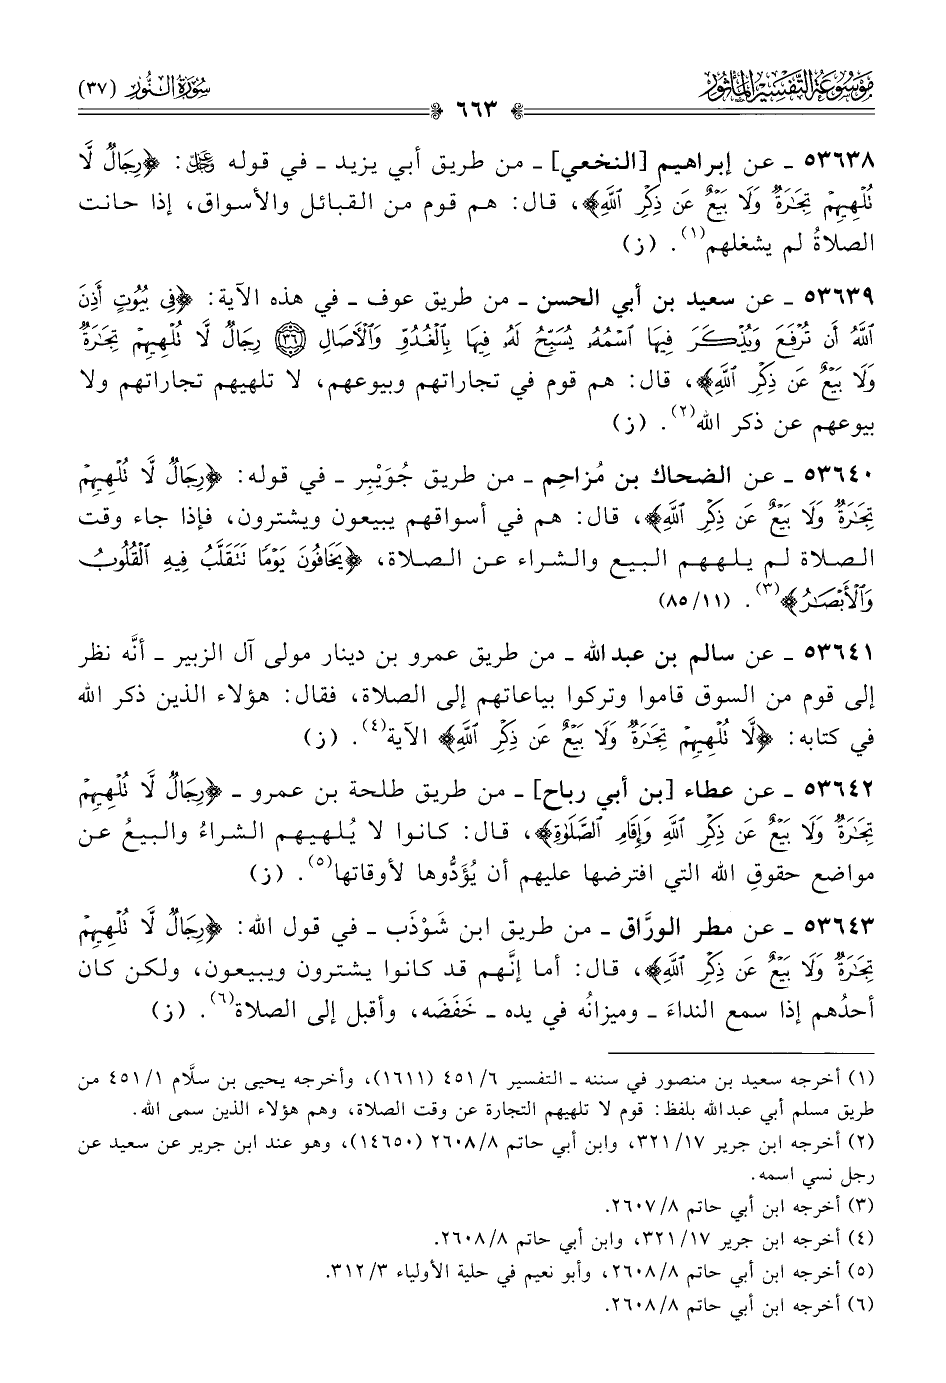 مَوْسُوعَة التَّفْسِير المَأثُور
٦٦٣
سُورَةُ النُّور (٣٧)
٥٣٦٣٨ ـ عن إبراهيم [النخعي] ـ من طريق أبي يزيد ـ في قوله ﷿: ﴿رِجَالٌ لَّا
تُلْهِيهِمْ تِجَٰرَةٌ وَلَا بَيْعٌ عَن ذِكْرِ ٱللَّهِ﴾، قال: هم قوم من القبائل والأسواق، إذا حانت
الصلاةُ لم يشغلهم(١). (ز)
٥٣٦٣٩ ـ عن سعيد بن أبي الحسن ـ من طريق عوف ـ في هذه الآية: ﴿فِى بُيُوتٍ أَذِنَ
ٱللَّهُ أَن تُرْفَعَ وَيُذْكَرَ فِيهَا ٱسْمُهُۥ يُسَبِّحُ لَهُۥ فِيهَا بِٱلْغُدُوِّ وَٱلْأَصَالِ ٣٦ رِجَالٌ لَّا تُلْهِيهِمْ تِجَٰرَةٌ
وَلَا بَيْعٌ عَن ذِكْرِ ٱللَّهِ﴾، قال: هم قوم في تجاراتهم وبيوعهم، لا تلهيهم تجاراتهم ولا
بيوعهم عن ذكر الله(٢). (ز)
٥٣٦٤٠ ـ عن الضحاك بن مُزاحِم ـ من طريق جُوَيْبِر ـ في قوله: ﴿رِجَالٌ لَّا تُلْهِيهِمْ
تِجَٰرَةٌ وَلَا بَيْعٌ عَن ذِكْرِ ٱللَّهِ﴾، قال: هم في أسواقهم يبيعون ويشترون، فإذا جاء وقت
الصلاة لم يلههم البيع والشراء عن الصلاة، ﴿يَخَافُونَ يَوْمًا تَتَقَلَّبُ فِيهِ ٱلْقُلُوبُ
وَٱلْأَبْصَٰرُ﴾(٣). (١١/ ٨٥)
٥٣٦٤١ ـ عن سالم بن عبد الله ـ من طريق عمرو بن دينار مولى آل الزبير ـ أنَّه نظر
إلى قوم من السوق قاموا وتركوا بياعاتهم إلى الصلاة، فقال: هؤلاء الذين ذكر الله
في كتابه: ﴿لَّا تُلْهِيهِمْ تِجَٰرَةٌ وَلَا بَيْعٌ عَن ذِكْرِ ٱللَّهِ﴾ الآية(٤). (ز)
٥٣٦٤٢ ـ عن عطاء [بن أبي رباح] ـ من طريق طلحة بن عمرو ـ ﴿رِجَالٌ لَّا تُلْهِيهِمْ
تِجَٰرَةٌ وَلَا بَيْعٌ عَن ذِكْرِ ٱللَّهِ وَإِقَامِ ٱلصَّلَوٰةِ﴾، قال: كانوا لا يُلهيهم الشراءُ والبيعُ عن
مواضع حقوقِ الله التي افترضها عليهم أن يُؤَدُّوها لأوقاتها(٥). (ز)
٥٣٦٤٣ ـ عن مطر الورَّاق ـ من طريق ابن شَوْذَب ـ في قول الله: ﴿رِجَالٌ لَّا تُلْهِيهِمْ
تِجَٰرَةٌ وَلَا بَيْعٌ عَن ذِكْرِ ٱللَّهِ﴾، قال: أما إنَّهم قد كانوا يشترون ويبيعون، ولكن كان
أحدُهم إذا سمع النداءَ ـ وميزانُه في يده ـ خَفَضَه، وأقبل إلى الصلاة(٦). (ز)
(١) أخرجه سعيد بن منصور في سننه ـ التفسير ٦/ ٤٥١ (١٦١١)، وأخرجه يحيى بن سلَّام ١/ ٤٥١ من
طريق مسلم أبي عبد الله بلفظ: قوم لا تلهيهم التجارة عن وقت الصلاة، وهم هؤلاء الذين سمى الله.
(٢) أخرجه ابن جرير ١٧/ ٣٢١، وابن أبي حاتم ٨/ ٢٦٠٨ (١٤٦٥٠)، وهو عند ابن جرير عن سعيد عن
رجل نسي اسمه.
(٣) أخرجه ابن أبي حاتم ٨/ ٢٦٠٧.
(٤) أخرجه ابن جرير ١٧/ ٣٢١، وابن أبي حاتم ٨/ ٢٦٠٨.
(٥) أخرجه ابن أبي حاتم ٨/ ٢٦٠٨، وأبو نعيم في حلية الأولياء ٣/ ٣١٢.
(٦) أخرجه ابن أبي حاتم ٨/ ٢٦٠٨.